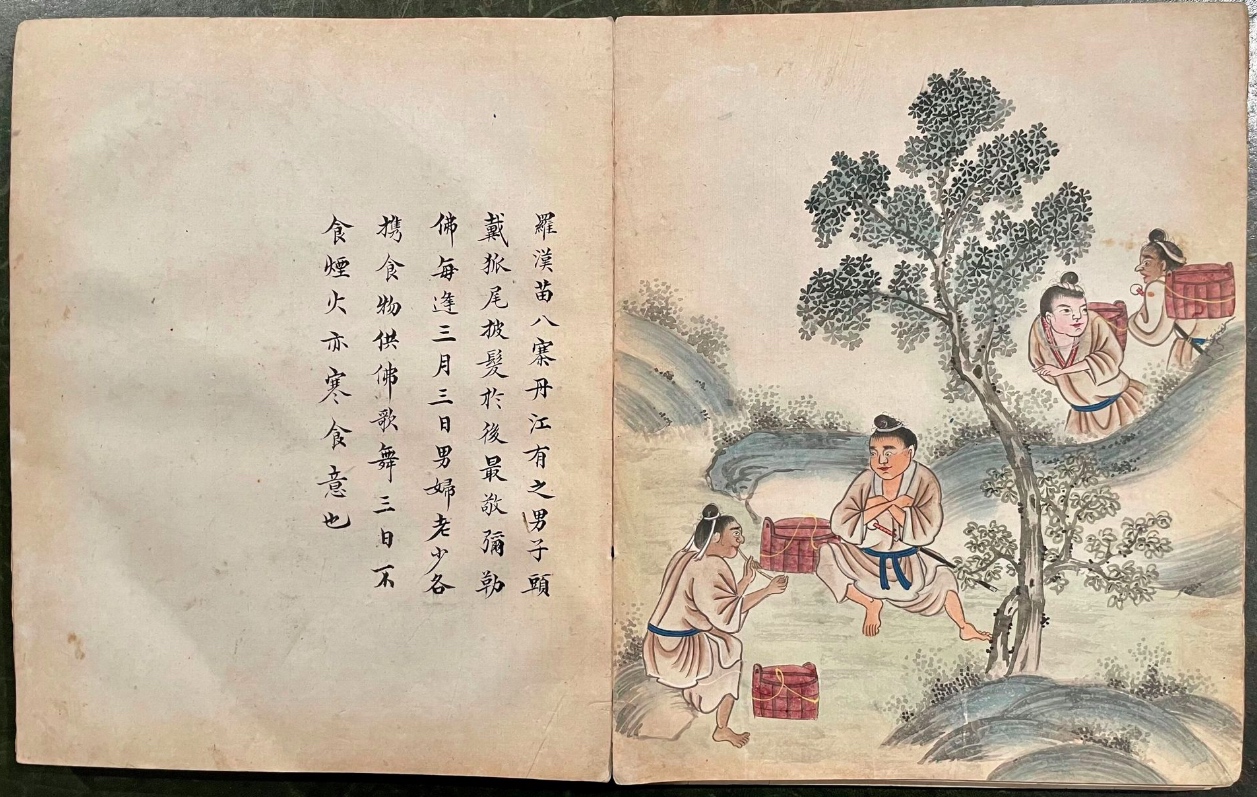 羅漢苗八寨丹江有之男子頭
戴狐尾披髮於後最敬彌勒
佛每逢三月三日男婦老少各
携食物供佛歌舞三日不
食煙火亦寒食意也